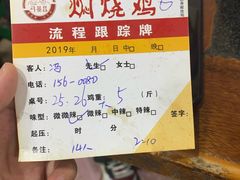 焖烧鸡
流程跟踪牌
2019年 月 日中□ 晚□
客人：冯 先生 女士□
电话：156-0080
桌号：25.26 鸡重：5 (斤)
味型：微微辣 微辣 中辣 特辣 签字：
起压： 时 分
备注：14人 2-10